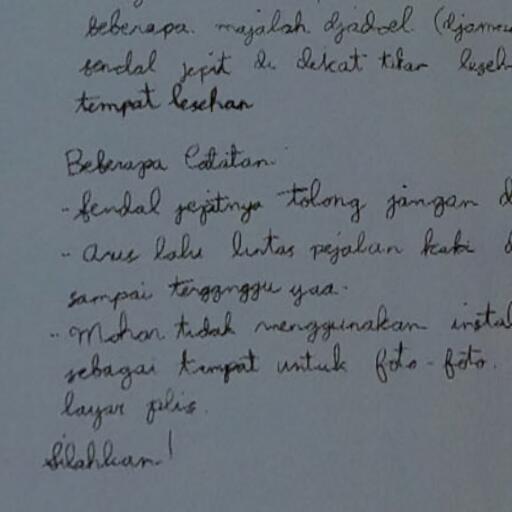 beberapa majalah djadoel (djaman
sendal jepit di dekat tikar leseh
tempat lesehan
Beberapa Catatan
- Sendal jepitnya tolong jangan d
- Arus lalu lintas pejalan kaki
sampai terganggu yaa.
- Mohon tidak menggunakan instal
sebagai tempat untuk foto-foto.
layar plis.
Silahkan!